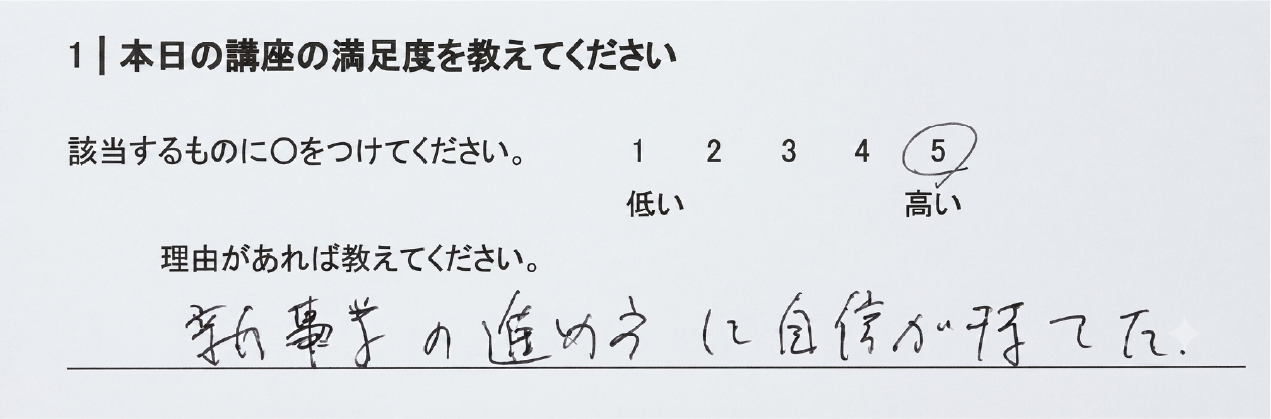 1｜本日の講座の満足度を教えてください
該当するものに〇をつけてください。 1 2 3 4 5
低い 高い
理由があれば教えてください。
新事業の進め方に自信が持てた.